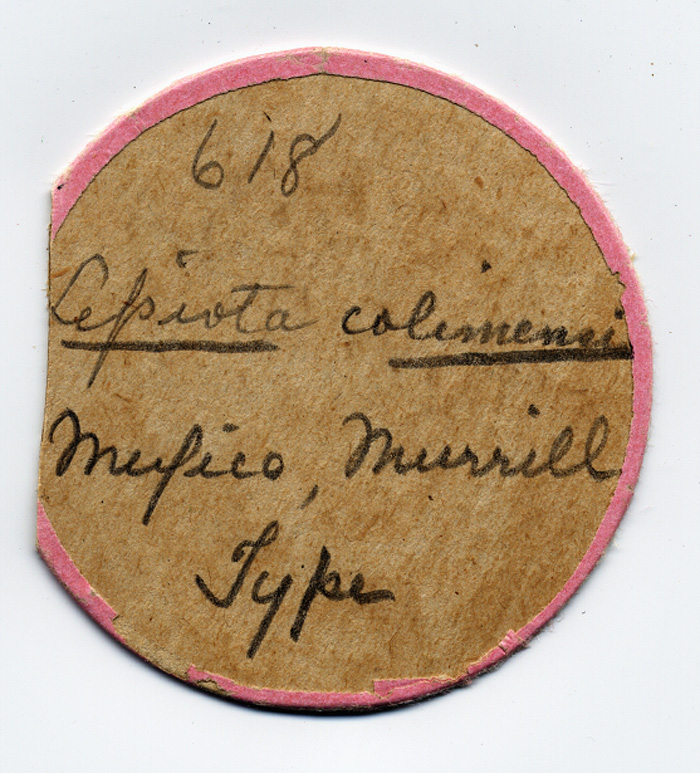 618
Lepiota colimensi
Mexico, Murrill
Type